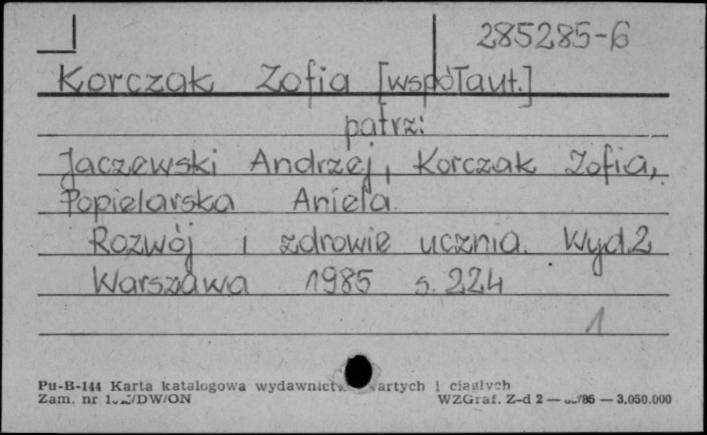 285285-6
Korczak Zofia [współaut.]
patrz:
Jaczewski Andrzej, Korczak Zofia,
Popielarska Aniela.
Rozwój i zdrowie ucznia. Wyd.2
Warszawa 1985 s. 224
1
Pu-B-144 Karta katalogowa i ciągłych
Zam. nr WZGraf. Z-d 2 — — 3.050.000